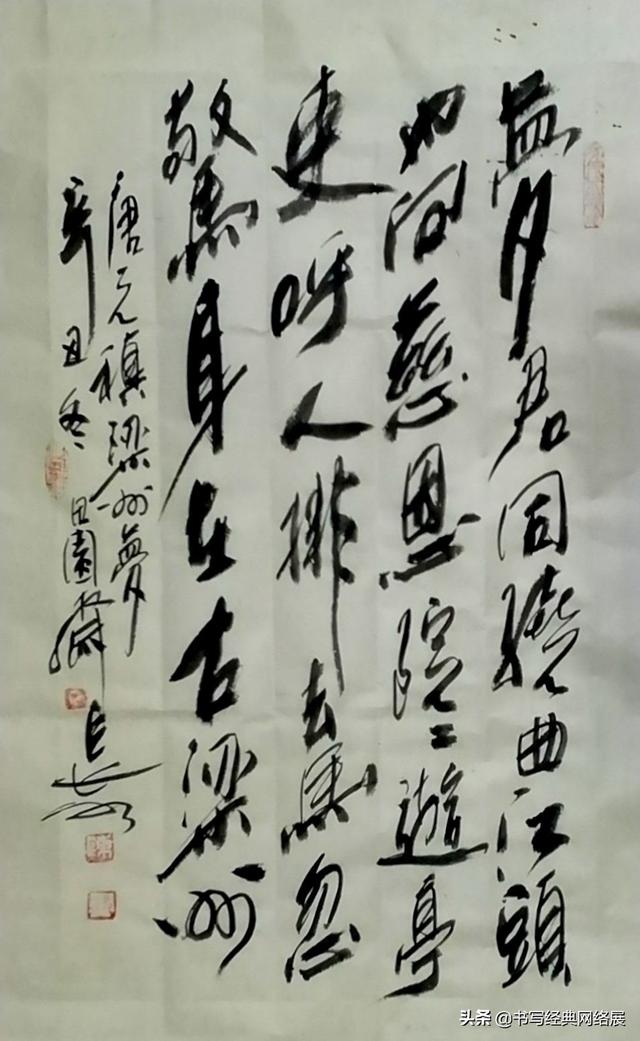 夢君同繞曲江頭
也向慈恩院々遊亭
吏呼人排去馬忽
驚身在古梁州
唐元稹梁州夢
辛丑冬 田園齋
头条 @书写经典网络展